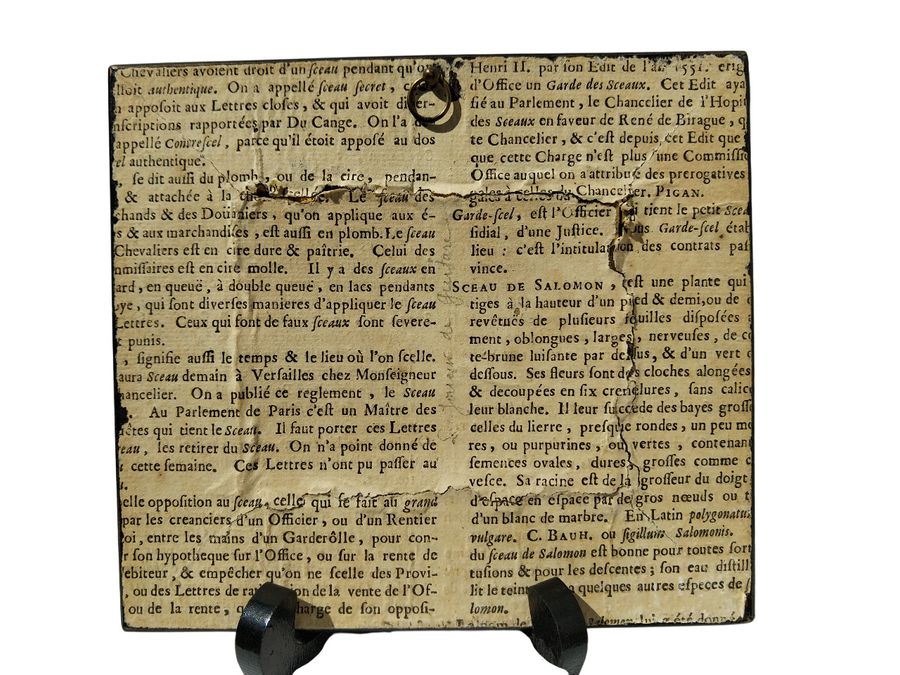 Chevaliers avoient droit d'un sceau pendant qu'on
authentique. On a appellé sceau secret,
apposoit aux Lettres closes, & qui avoit
inscriptions rapportées par Du Cange. On l'a
appellé Contrescel, parce qu'il étoit apposé au dos
el authentique.
, se dit aussi du plomb, ou de la cire, pendan-
& attachée à la Le sceau des
hands & des Douaniers, qu'on applique aux é-
s & aux marchandises, est aussi en plomb. Le sceau
Chevaliers est en cire dure & paîtrie. Celui des
mmissaires est en cire molle. Il y a des sceaux en
ard, en queuë, à double queuë, en lacs pendants
ye, qui sont diverses manieres d'appliquer le sceau
Lettres. Ceux qui font de faux sceaux sont severe-
t punis.
, signifie aussi le temps & le lieu où l'on scelle.
aura Sceau demain à Versailles chez Monseigneur
hancelier. On a publié ce reglement, le Sceau
. Au Parlement de Paris c'est un Maître des
êtes qui tient le Sceau. Il faut porter ces Lettres
eau, les retirer du Sceau. On n'a point donné de
cette semaine. Ces Lettres n'ont pu passer au
.
elle opposition au sceau, celle qui se fait au grand
par les creanciers d'un Officier, ou d'un Rentier
oi, entre les mains d'un Garderôlle, pour con-
r son hypotheque sur l'Office, ou sur la rente de
ebiteur, & empêcher qu'on ne scelle des Provi-
, ou des Lettres de de la vente de l'Of-
ou de la rente, charge de son opposi-
Henri II. par son Edit de l'an 1551. erig
d'Office un Garde des Sceaux. Cet Edit aya
fié au Parlement, le Chancelier de l'Hopit
des Sceaux en faveur de René de Birague, q
te Chancelier, & c'est depuis cet Edit que
que cette Charge n'est plus une Commissio
Office auquel on a attribué des prerogatives
gales à celles du Chancelier. PIGAN.
Garde-scel, est l'Officier qui tient le petit Scea
sidial, d'une Justice. Garde-scel étab
lieu : c'est l'intitulation des contrats pas
vince.
SCEAU DE SALOMON, est une plante qui
tiges à la hauteur d'un pied & demi, ou de
revêtuës de plusieurs feuilles disposées a
ment, oblongues, larges, nerveuses, de co
te-brune luisante par dessus, & d'un vert
dessous. Ses fleurs sont des cloches alongées
& decoupées en six crenelures, sans calice
leur blanche. Il leur succede des bayes grosse
celles du lierre, presque rondes, un peu mo
res, ou purpurines, ou vertes, contenan
semences ovales, dures, grosses comme c
vesce. Sa racine est de la grosseur du doigt
d'espace en espace par de gros nœuds ou t
d'un blanc de marbre. En Latin polygonatum
vulgare. C. BAUH. ou sigillum Salomonis.
du sceau de Salomon est bonne pour toutes sort
tusions & pour les descentes; son eau distill
lit le teint quelques autres especes de
lomon.